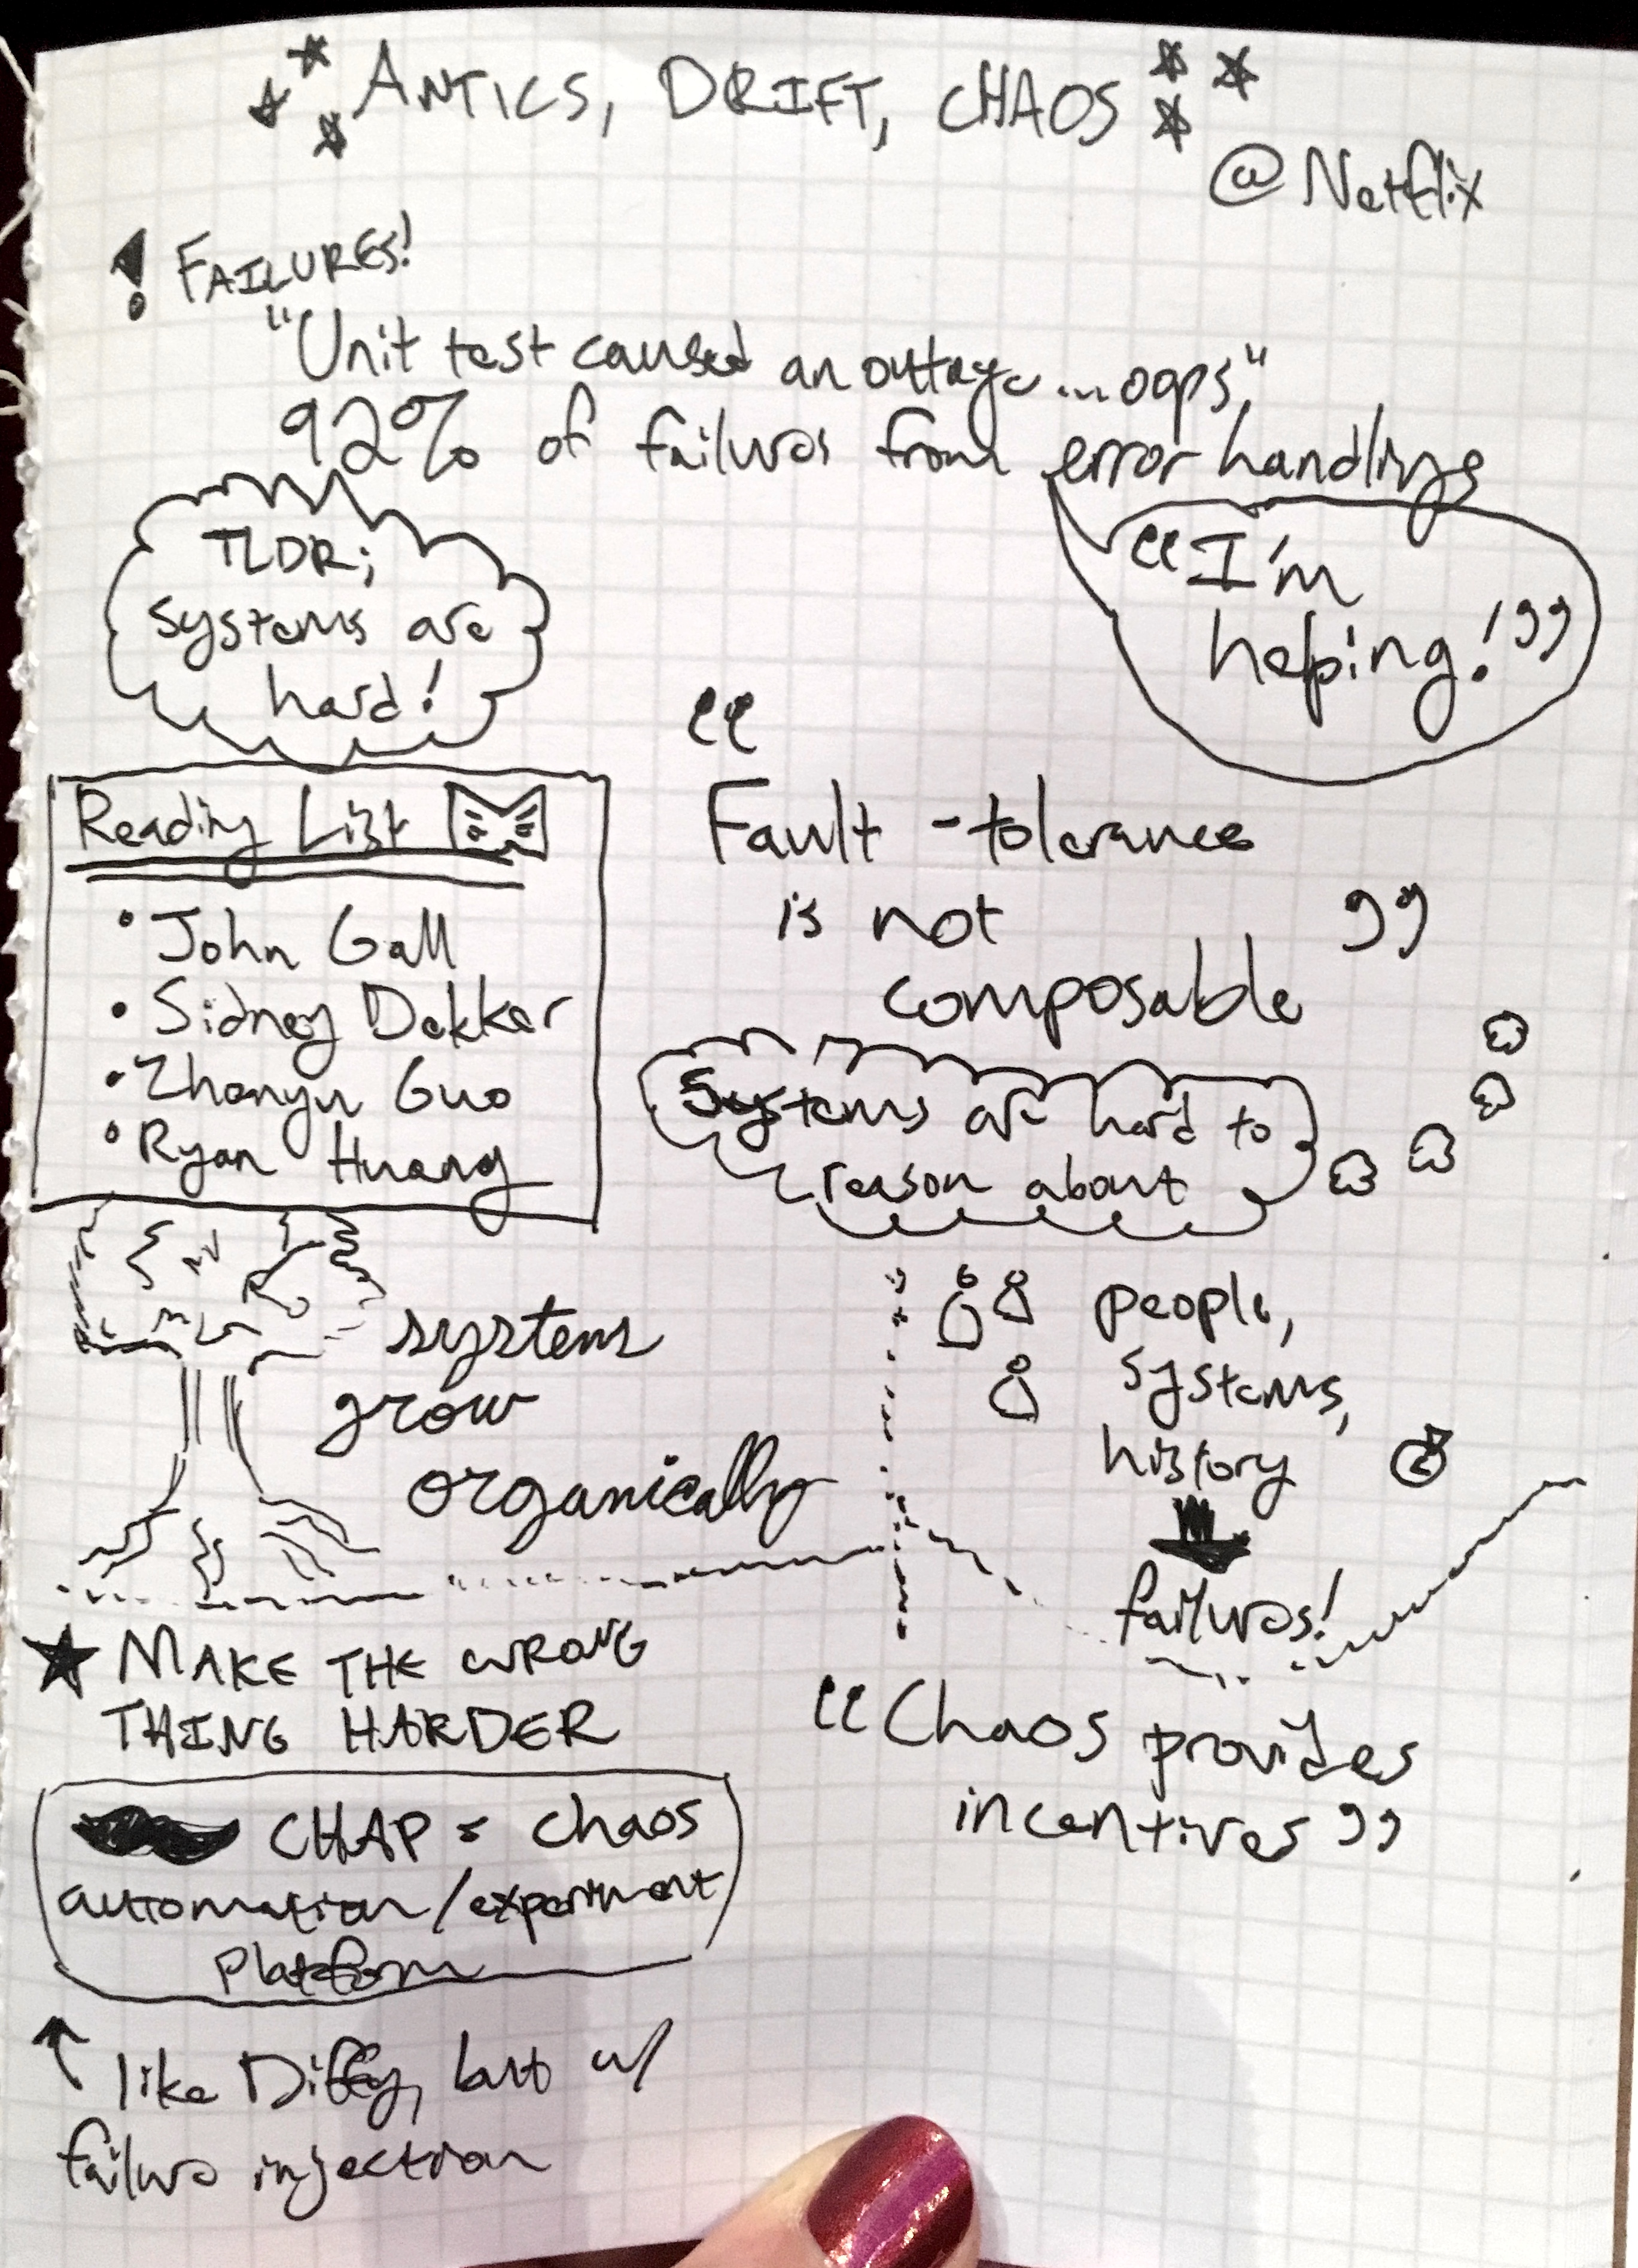 ANTICS, DRIFT, CHAOS
@Netflix
! FAILURES!
"Unit test caused an outage...oops"
92% of failures from error handling
"I'm
helping!"
TLDR;
systems are
hard!
Reading List
• John Gall
• Sidney Dekker
• Zhenyu Guo
• Ryan Huang
"
Fault-tolerance
is not "
composable
Systems are hard to
reason about
systems
grow
organically
people,
systems,
history
failures!
★ MAKE THE WRONG
THING HARDER
CHAP = chaos
automation/experiment
platform
↑ like Diffy, but w/
failure injection
"Chaos provides
incentives"